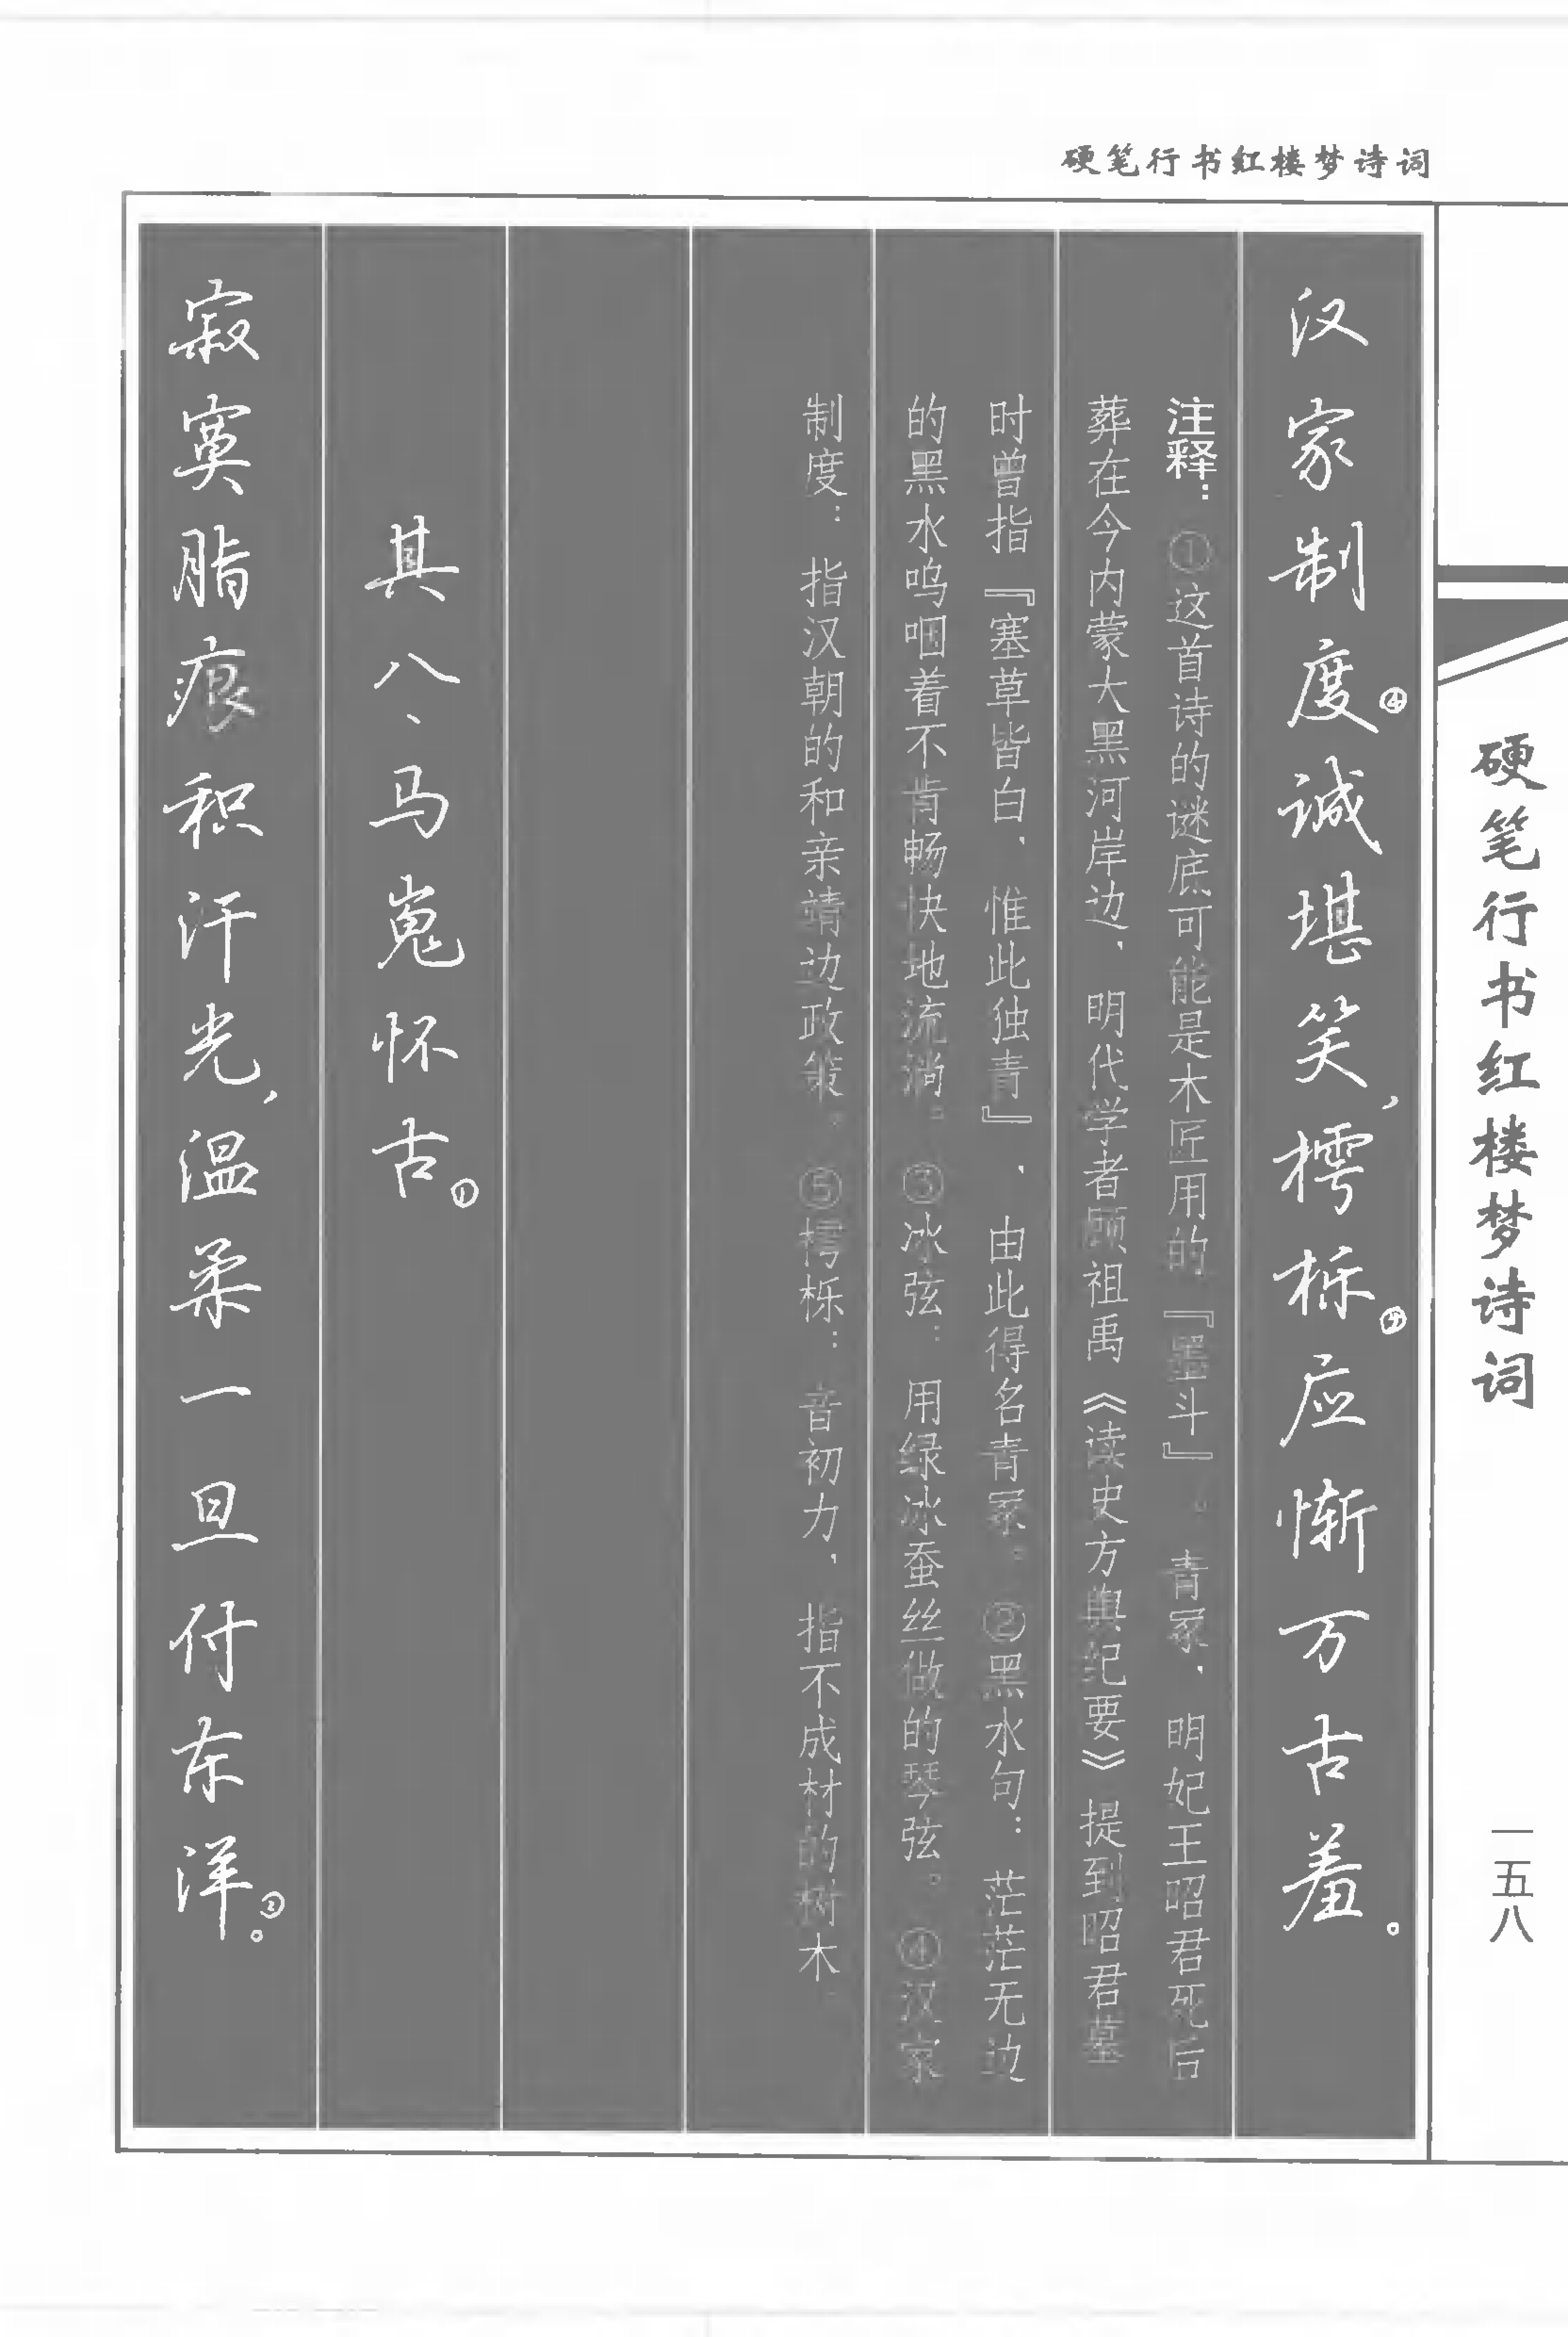 硬笔行书红楼梦诗词
汉家制度④诚堪笑，樗栎⑤应惭万古羞。
注释：①这首诗的谜底可能是木匠用的『墨斗』。青冢，明妃王昭君死后
葬在今内蒙大黑河岸边，明代学者顾祖禹《读史方舆纪要》提到昭君墓
时曾指『塞草皆白，惟此独青』，由此得名青冢。②黑水句：茫茫无边
的黑水呜咽着不肯畅快地流淌。③冰弦：用绿冰蚕丝做的琴弦。④汉家
制度：指汉朝的和亲靖边政策。⑤樗栎：音初力，指不成材的树木
其八、马嵬怀古①
寂寞脂痕积汗光，温柔一旦付东洋②。
硬笔行书红楼梦诗词
一五八